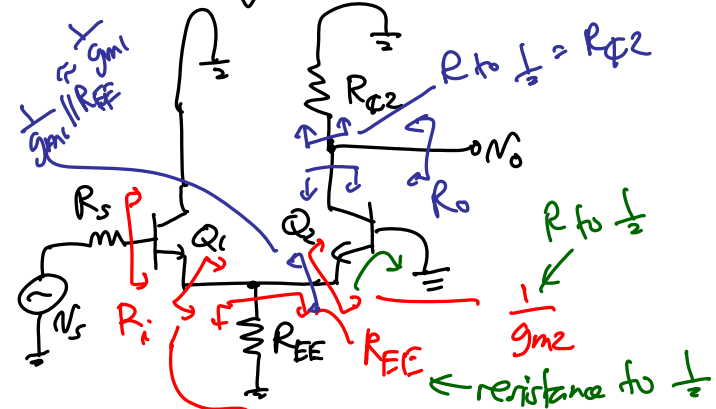 1/gm1 || REE ≈ 1/gm1
R to ⏚ = RC2
RC2
vo
Ro
Rs
Q1
Q2
R to ⏚
vs
Ri
REE
REE
1/gm2
resistance to ⏚